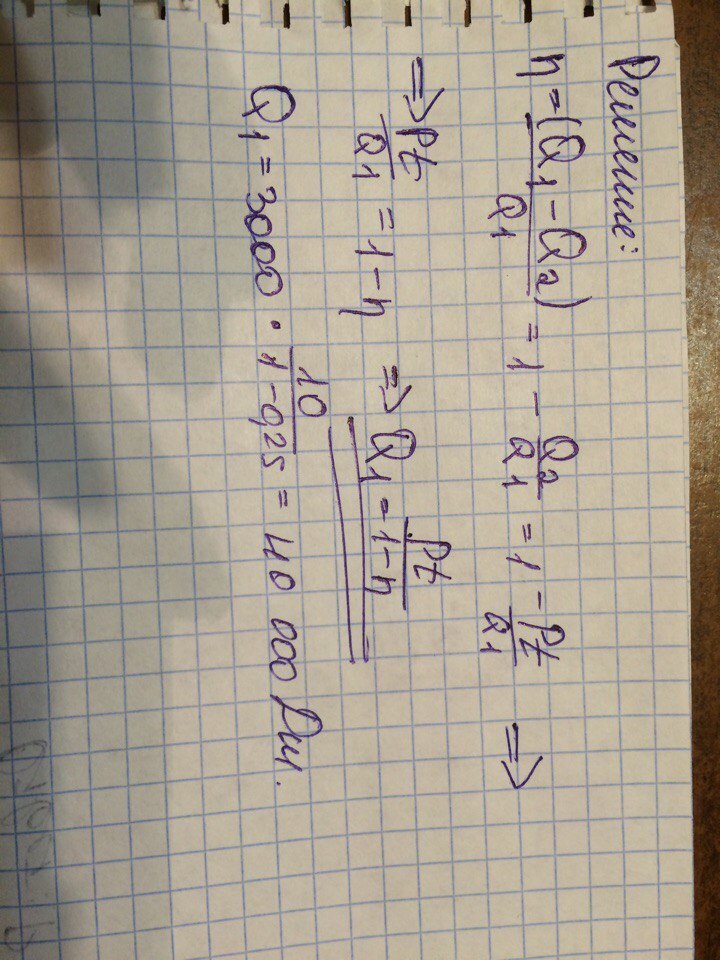 Решение:
η = (Q₁ - Q₂)/Q₁ = 1 - Q₂/Q₁ = 1 - Pt/Q₁ ⇒
⇒ Pt/Q₁ = 1 - η ⇒ Q₁ = Pt/(1 - η)
Q₁ = 3000 · 10/(1 - 0,25) = 40 000 Дж.